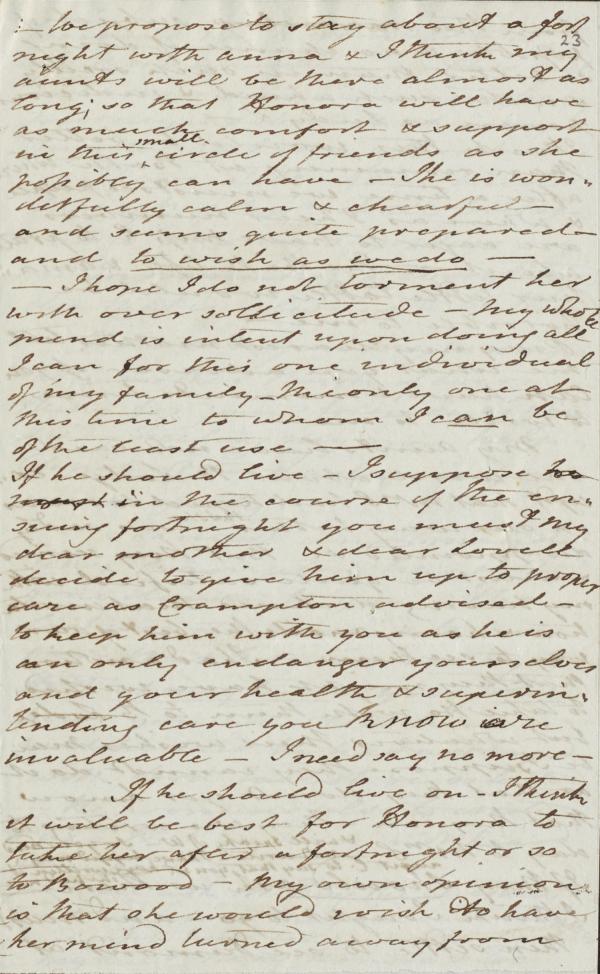 :- We propose to stay about a fort
23
night with anna & I think my
aunts will be there almost as
long; so that Honora will have
as much comfort & support
in this small circle of friends as she
possibly can have - She is won=
derfully calm & chearful -
and seems quite prepared -
and to wish as we do -
- I hope I do not torment her
with over sollicitude - My whole
mind is intent upon doing all
I can for this one individual
of my family - the only one at
this time to whom I can be
of the least use -
If he should live - I suppose he
must in the course of the en=
suing fortnight you must my
dear mother & dear Lovell
decide to give him up to proper
care as Crampton advised -
to keep him with you as he is
can only endanger yourselves
and your health & superin=
tending care you know are
invaluable - I need say no more -
If he should live on - I think
it will be best for Honora to
take her after a fortnight or so
to Bowood - My own opinion
is that she would wish to have
her mind turned away from